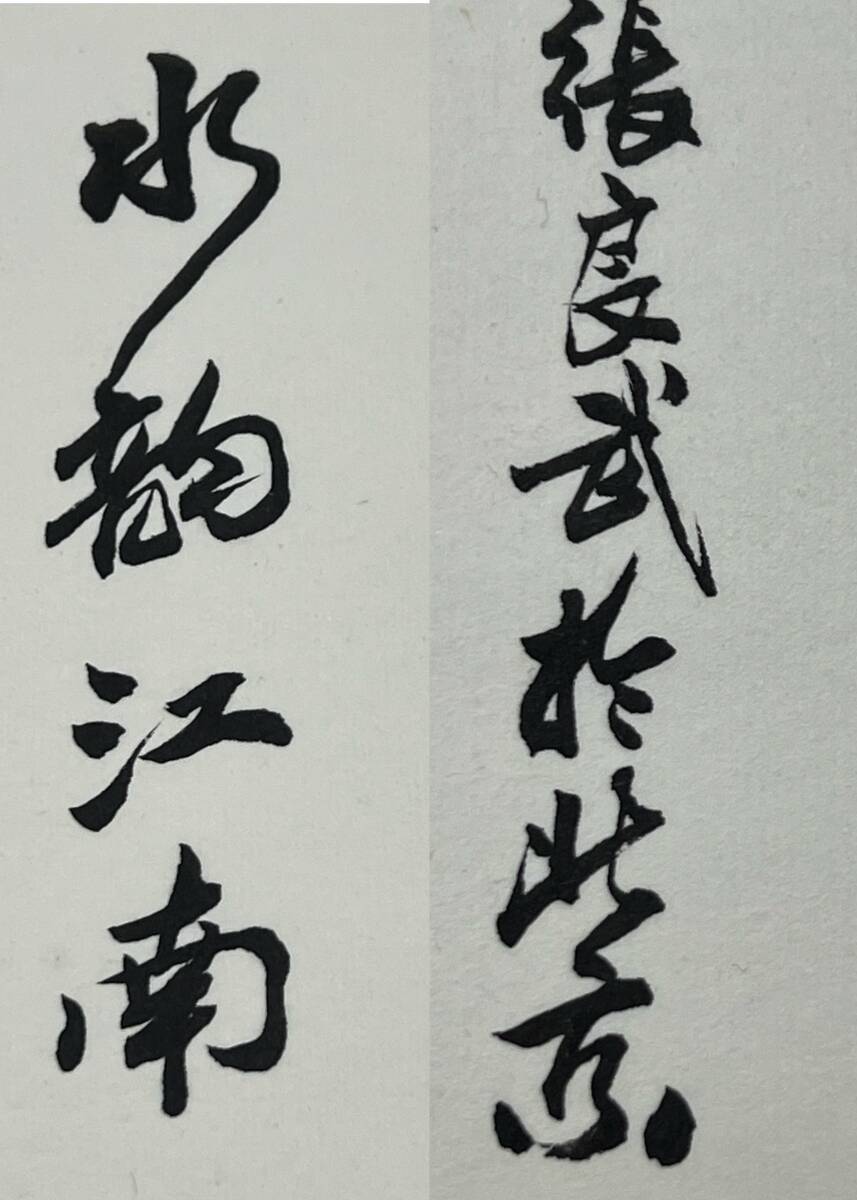 水韵江南
張良武於北京